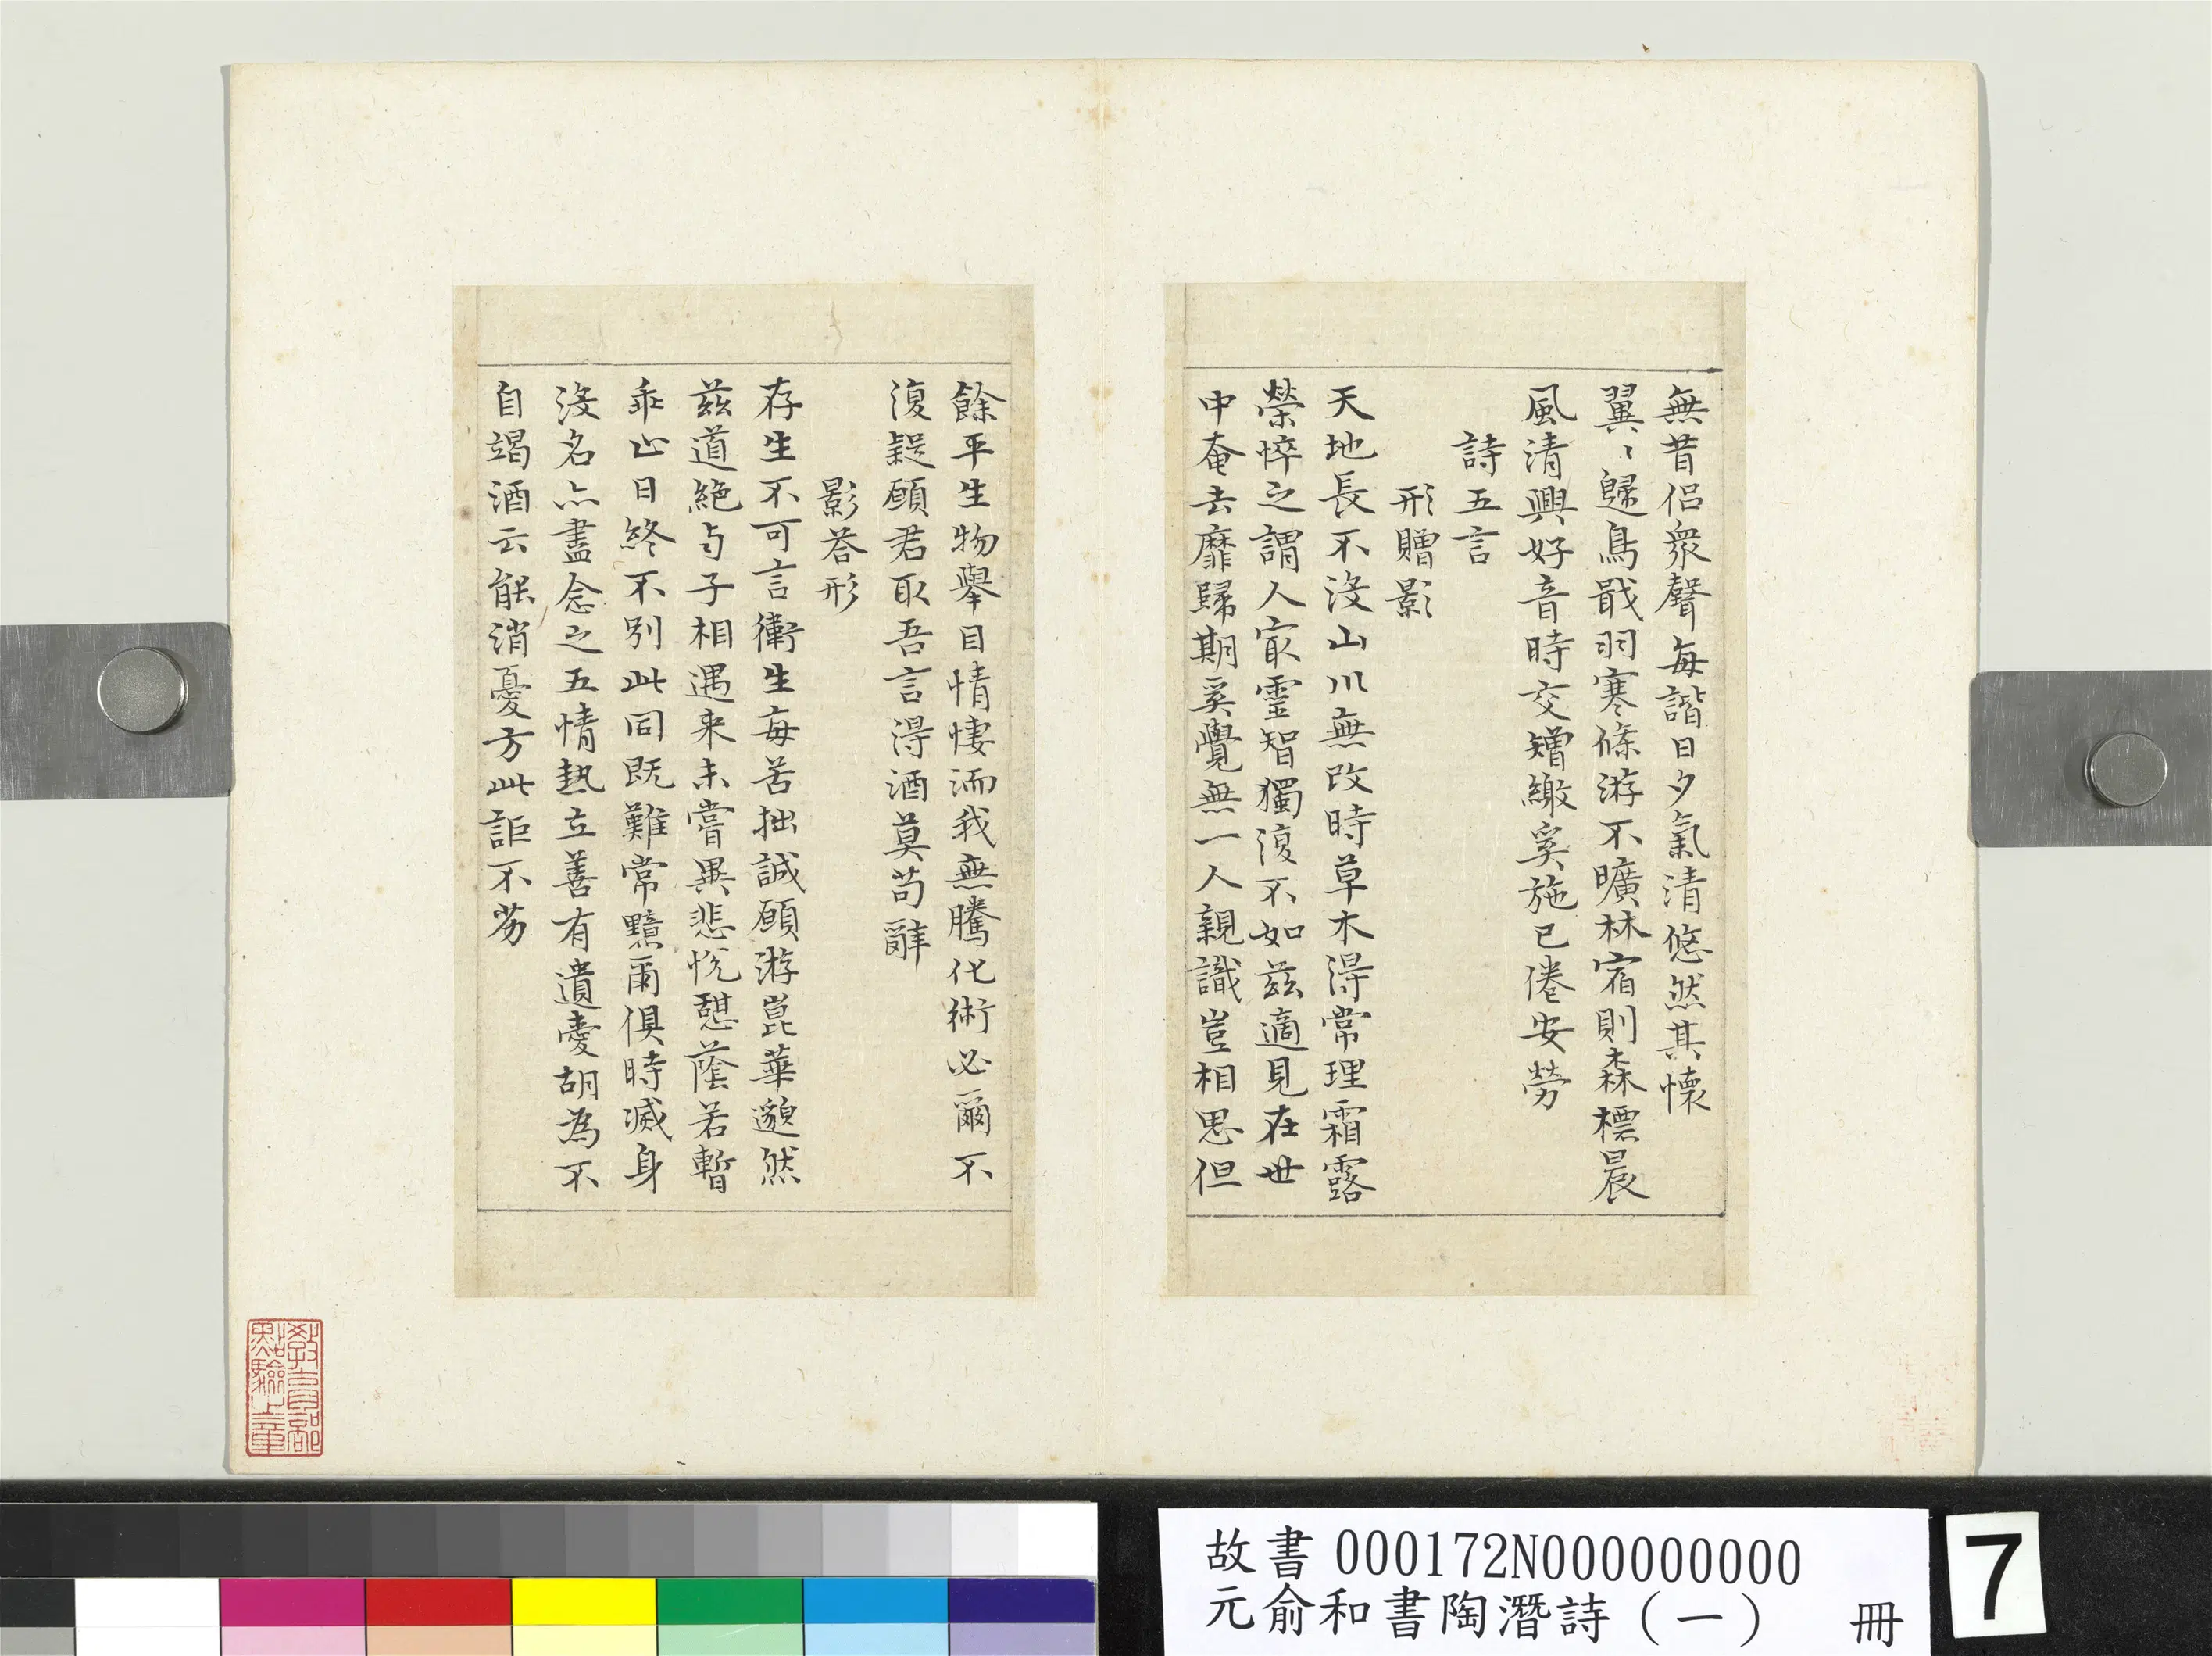 無昔侶衆聲每諧日夕氣清悠然其懷
翼〻歸鳥戢羽寒條游不曠林宿則森標晨
風清興好音時交矰繳奚施已倦安勞
詩五言
形贈影
天地長不没山川無改時草木得常理霜露
榮悴之謂人㝡靈智獨復不如兹適見在世
中奄去靡歸期奚覺無一人親識豈相思但
餘平生物舉目情悽洏我無騰化術必爾不
復疑願君取吾言得酒莫苟辭
影荅形
存生不可言衛生每苦拙誠願游崑華邈然
兹道絶与子相遇来未嘗異悲悦憇蔭若暫
乖止日終不別此同既難常黯爾俱時滅身
没名亦盡念之五情熱立善有遺愛胡為不
自竭酒云能消憂方此詎不劣
教育部點驗之章
故書 000172N000000000
元俞和書陶潛詩（一） 冊
7